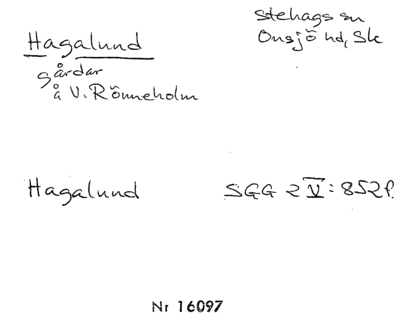 Hagalund
gårdar
å V. Rönneholm
Stehags sn
Onsjö hd, Sk
Hagalund
SGG 2 V: 852 f.
Nr 16097